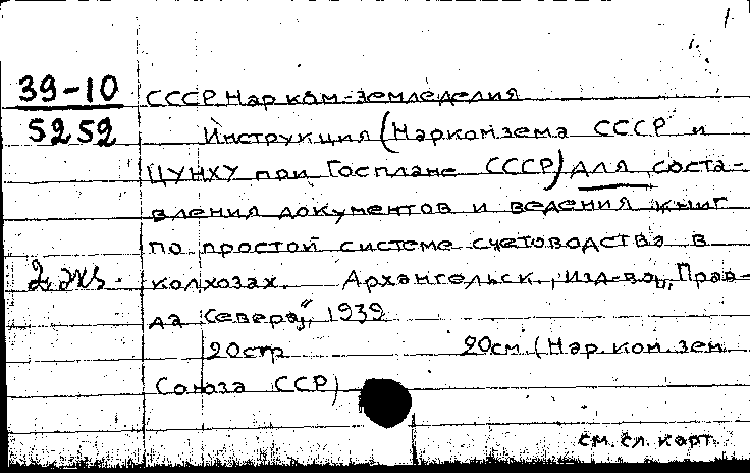 39-10 СССР. Нар. ком-земледелия
5252 Инструкция (Наркомзема СССР и
ЦУНХУ при Госплане СССР) для соста-
вления документов и ведения книг
по простой системе счетоводства в
2 экз. колхозах. Архангельск., Изд-во „Прав-
да Севера", 1939
20стр 20см. (Нар. ком. зем.
Союза ССР)
см. сл. карт.